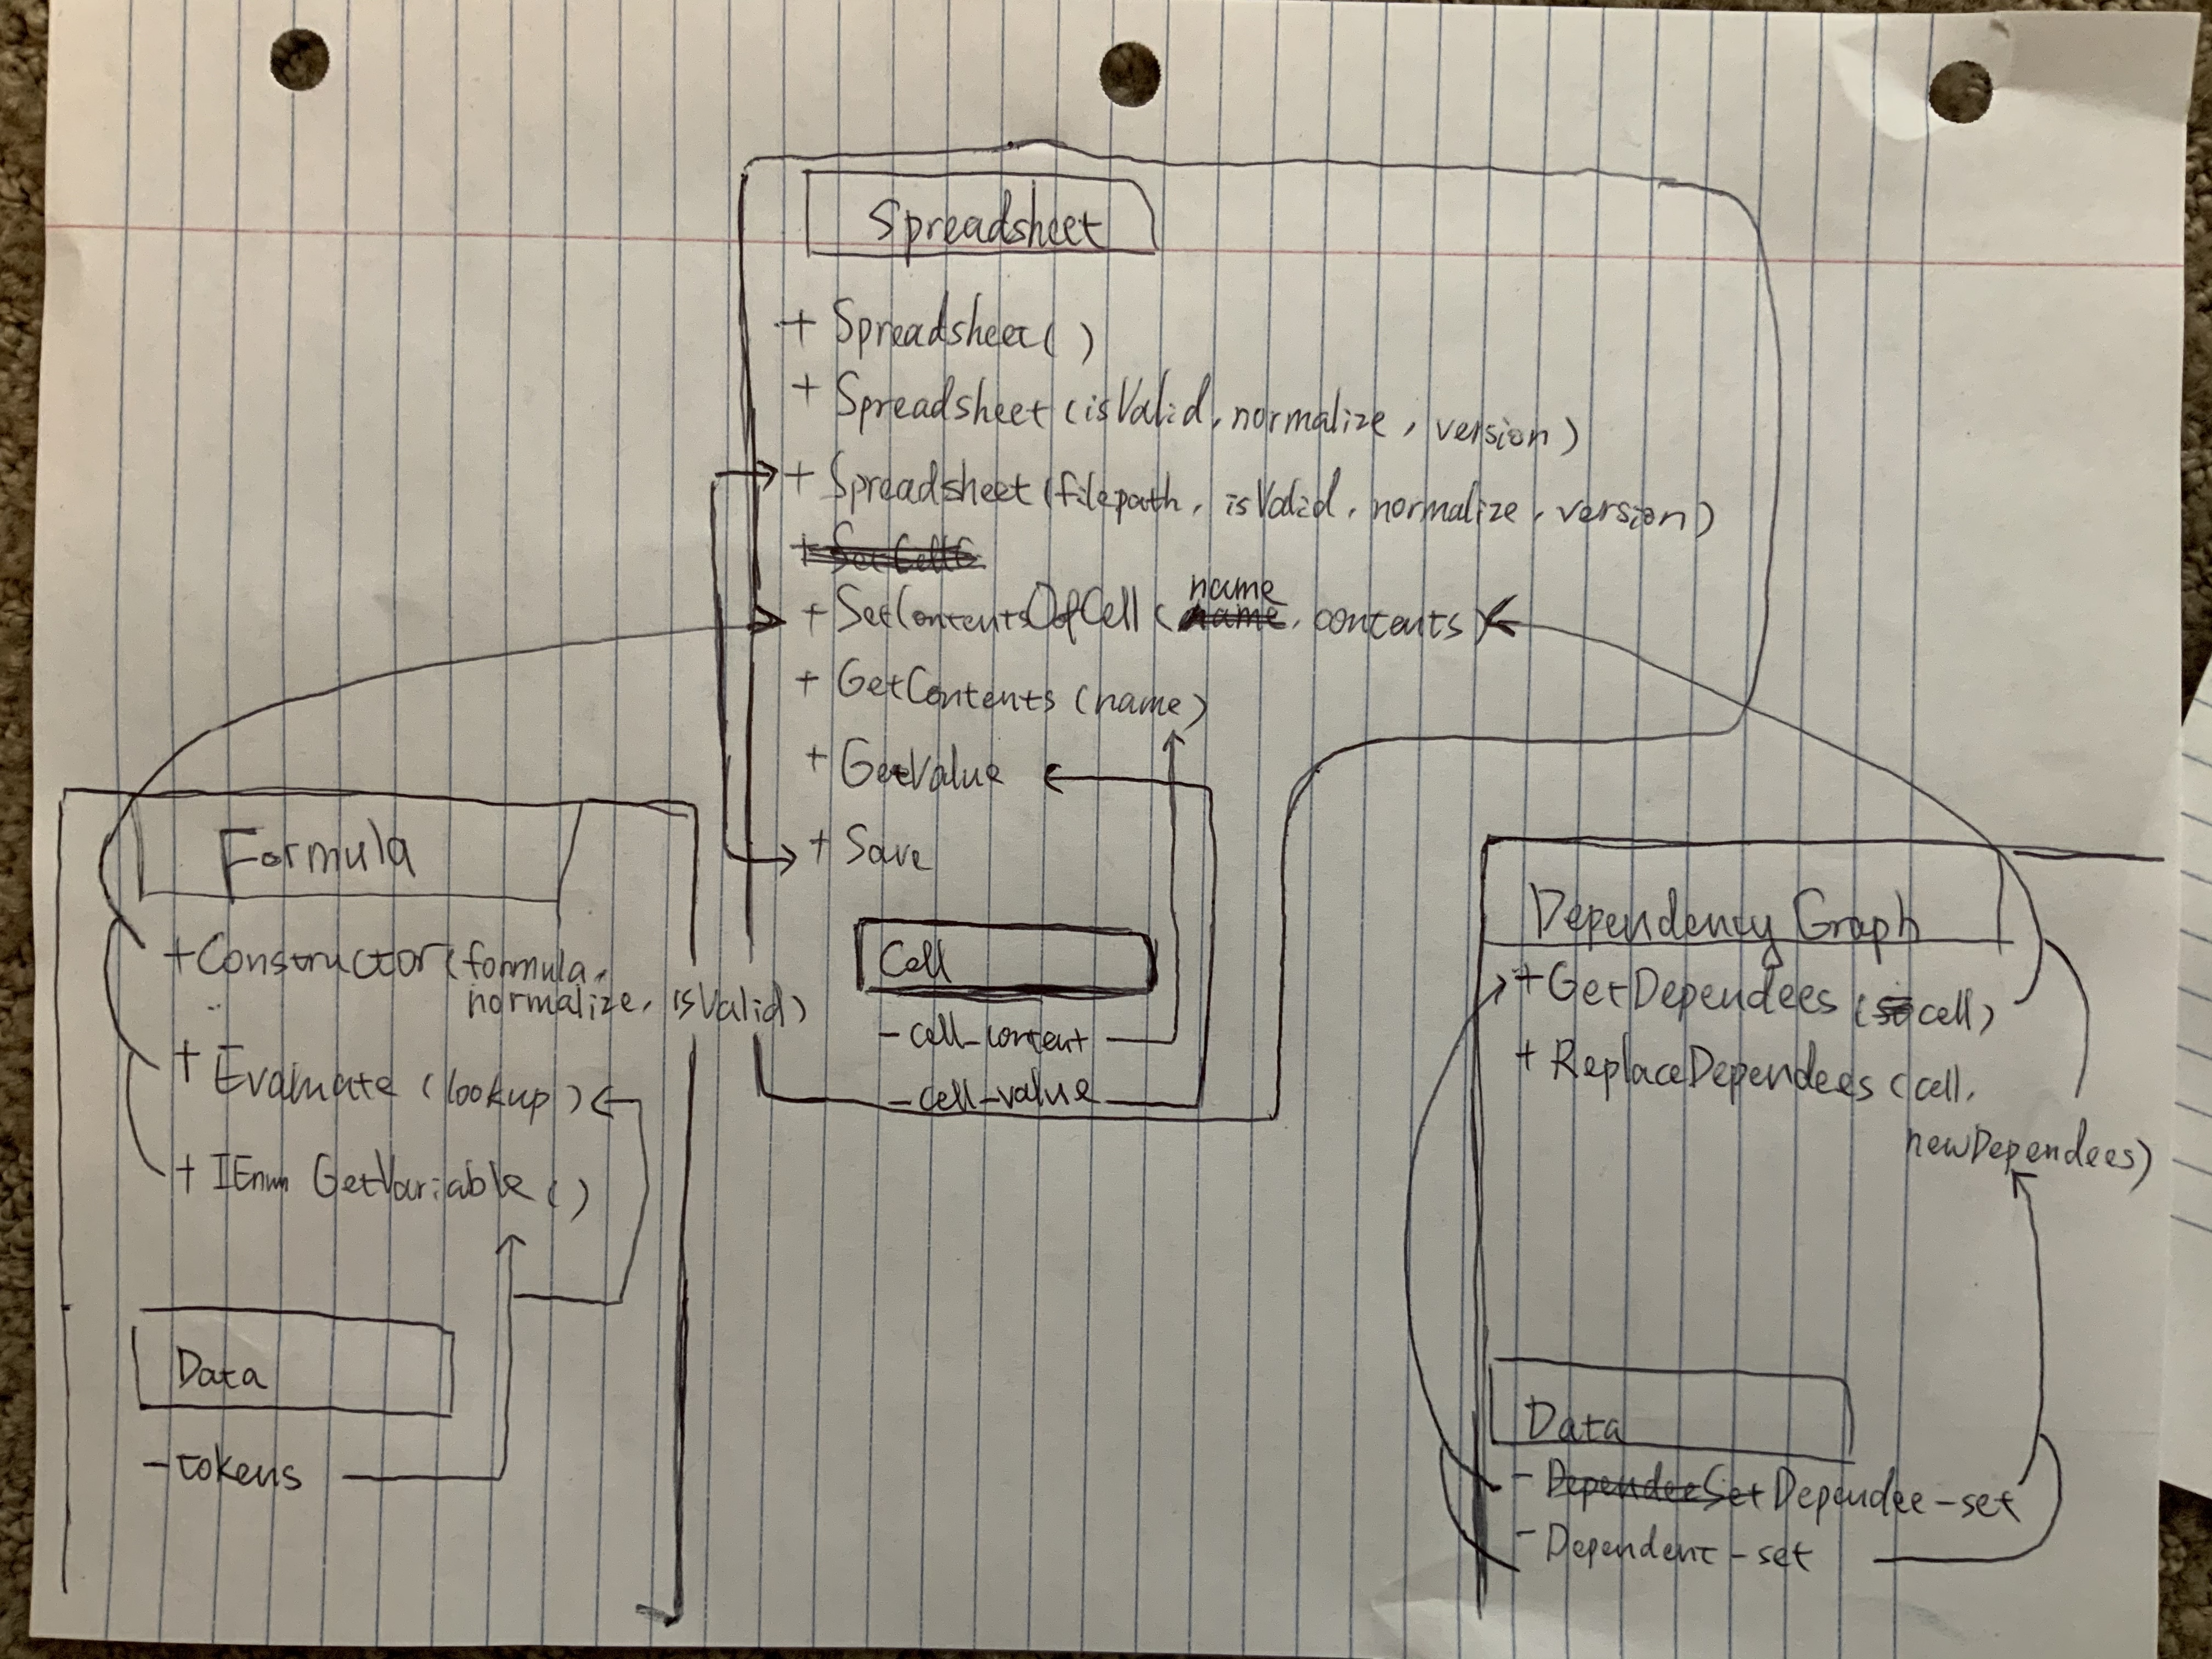 Spreadsheet
+ Spreadsheet()
+ Spreadsheet (isValid, normalize, version)
+ Spreadsheet (filepath, isValid, normalize, version)
+ SetContentsOfCell (name, contents)
+ GetContents (name)
+ GetValue
+ Save
Cell
- cell_content
- cell_value
Formula
+ Constructor (formula,
normalize, isValid)
+ Evaluate (lookup)
+ IEnum GetVariable ()
Data
- tokens
Dependency Graph
+ GetDependees (cell)
+ ReplaceDependees (cell,
newDependees)
Data
- DependeeSet Dependee-set
- Dependent-set